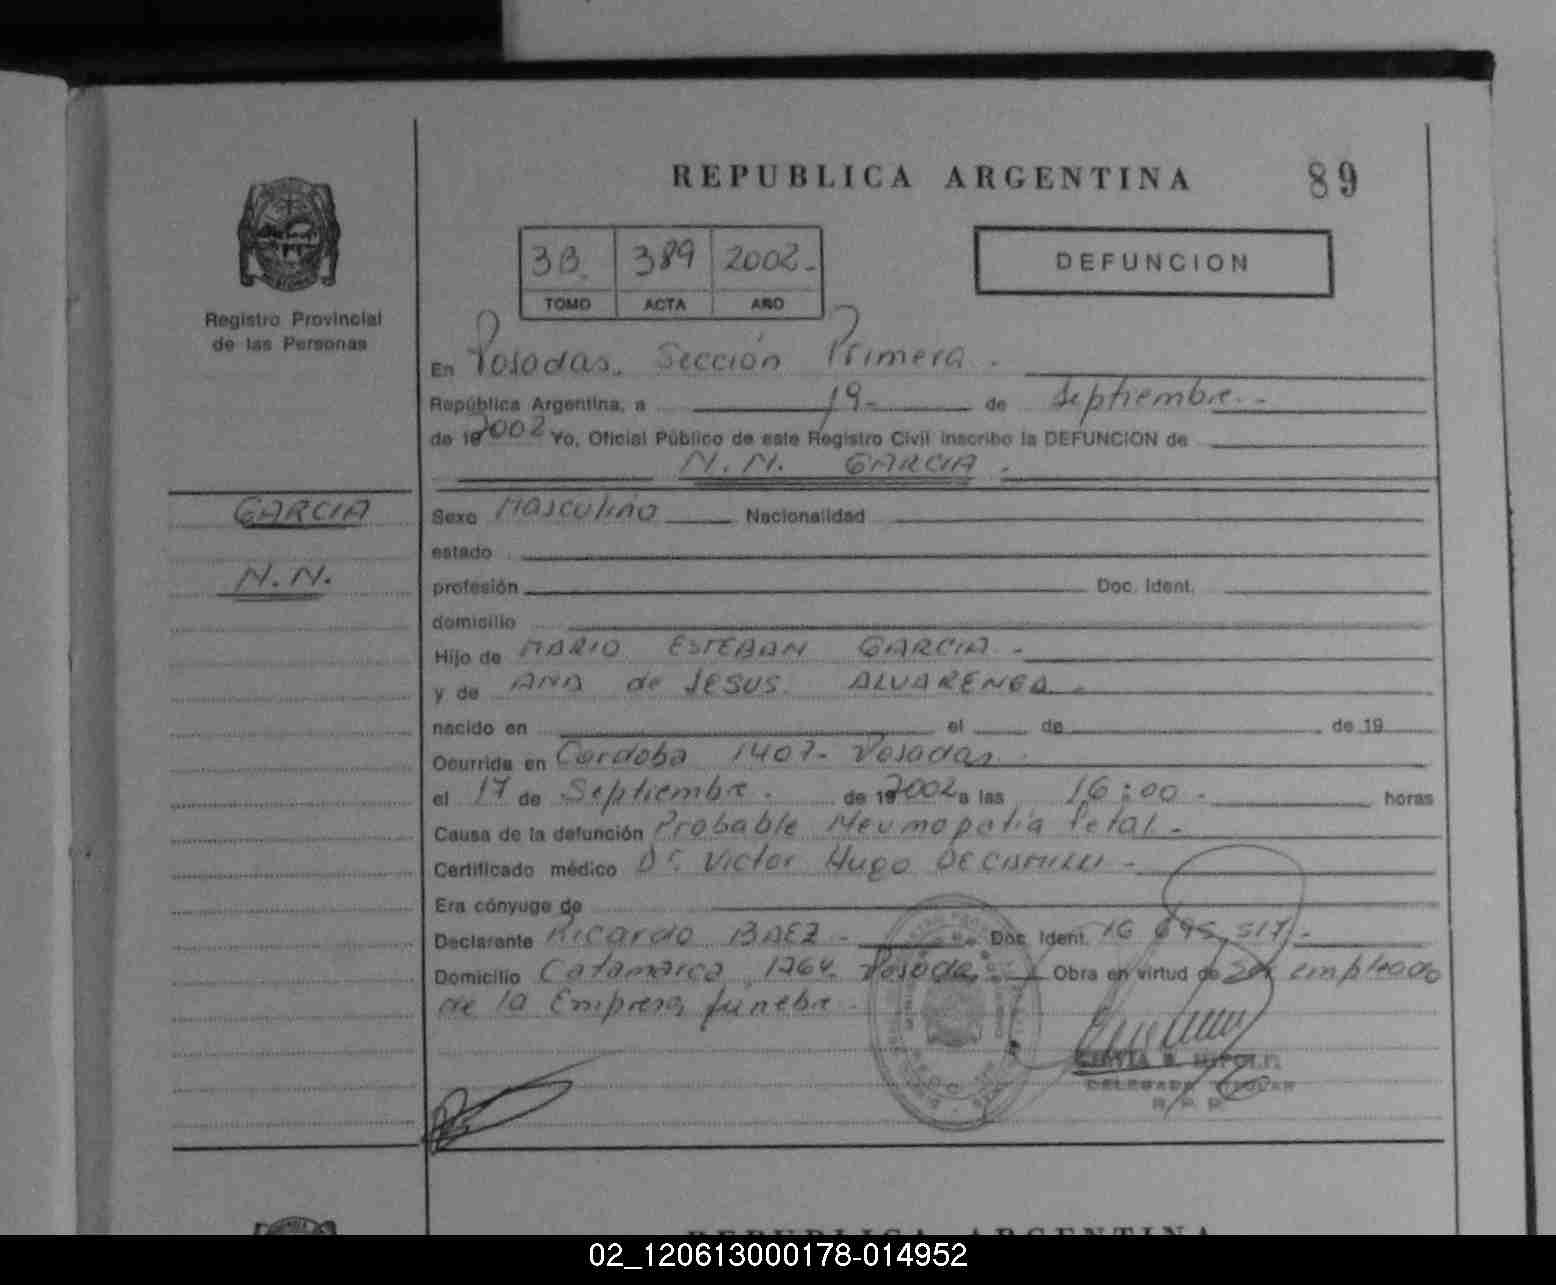 REPUBLICA ARGENTINA
89
3B. 389 2002.-
TOMO ACTA AÑO
DEFUNCION
Registro Provincial
de las Personas
En Posadas. Sección Primera.
República Argentina, a 19- de Septiembre.-
de 192002 Yo, Oficial Público de este Registro Civil inscribo la DEFUNCION de
N.N. GARCIA.
GARCIA
N.N.
Sexo Masculino Nacionalidad
estado
profesión Doc. Ident.
domicilio
Hijo de MARIO ESTEBAN GARCIA.-
y de ANA de JESUS ALVARENGA.-
nacido en el de de 19
Ocurrida en Cordoba 1407- Posadas.
el 17 de Septiembre. de 192002 a las 16:00.- horas
Causa de la defunción Probable Neumopatia fetal.-
Certificado médico Dr. Victor Hugo DECAMILLI-
Era cónyuge de
Declarante Ricardo BAEZ- Doc. Ident. 16.695.517-
Domicilio Catamarca 1764. Posadas Obra en virtud de ser empleado
de la Empresa funebre.
DELEGADA TITULAR
R. P. P.
REPUBLICA ARGENTINA
02_120613000178-014952